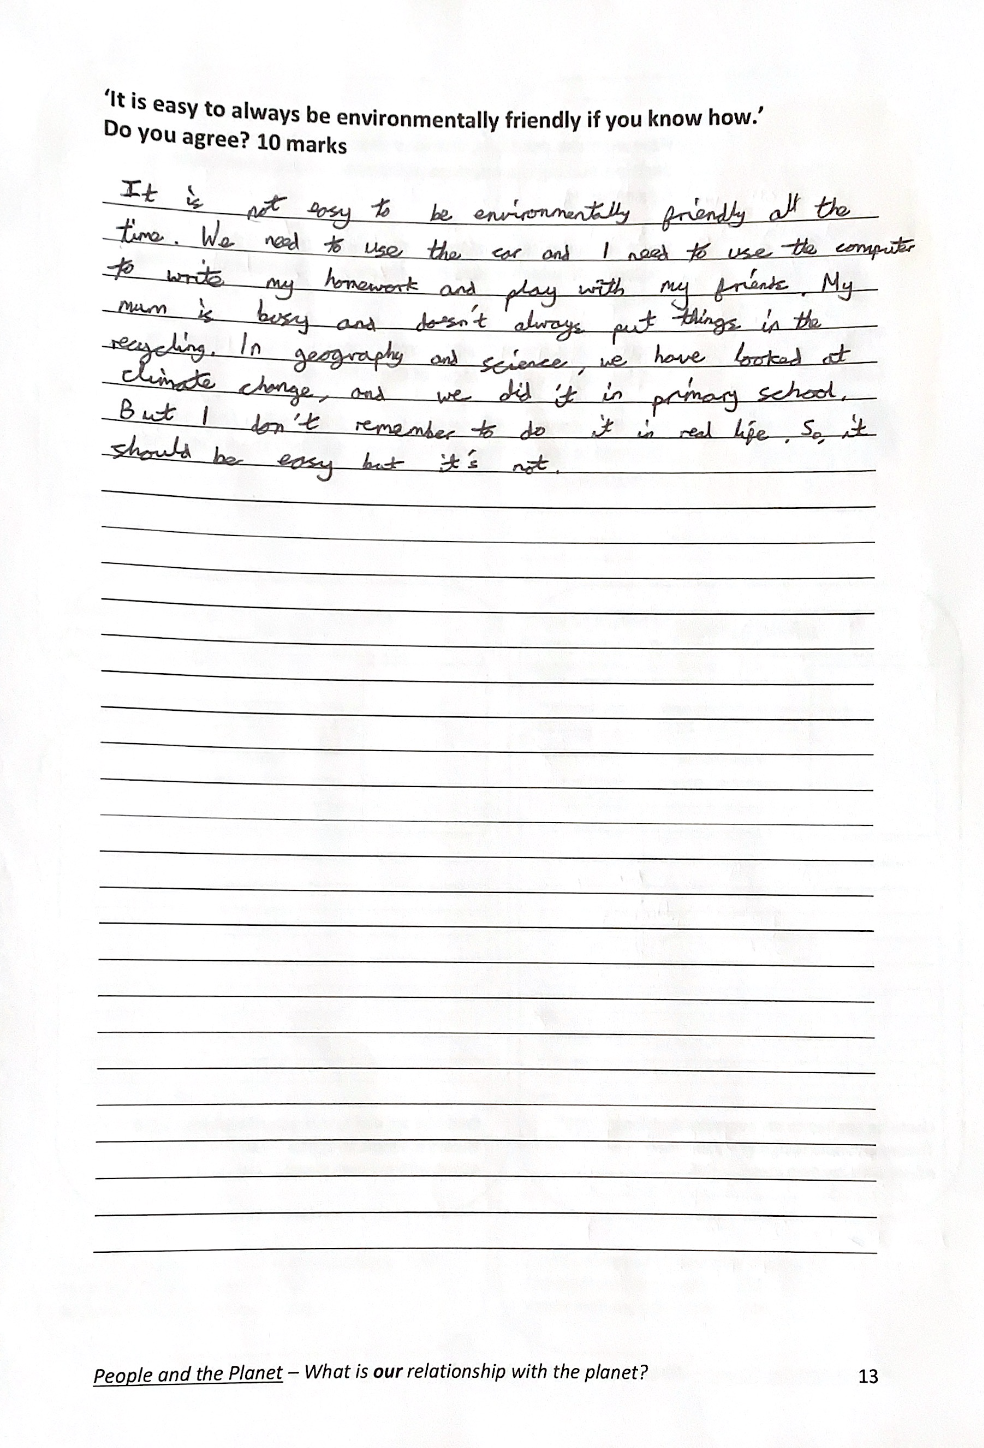 ‘It is easy to always be environmentally friendly if you know how.’
Do you agree? 10 marks
It is not easy to be environmentally friendly all the
time. We need to use the car and I need to use the computer
to write my homework and play with my friends. My
mum is busy and doesn't always put things in the
recycling. In geography and science, we have looked at
climate change, and we did it in primary school.
But I don't remember to do it in real life. So, it
should be easy but it's not.
People and the Planet – What is our relationship with the planet?
13